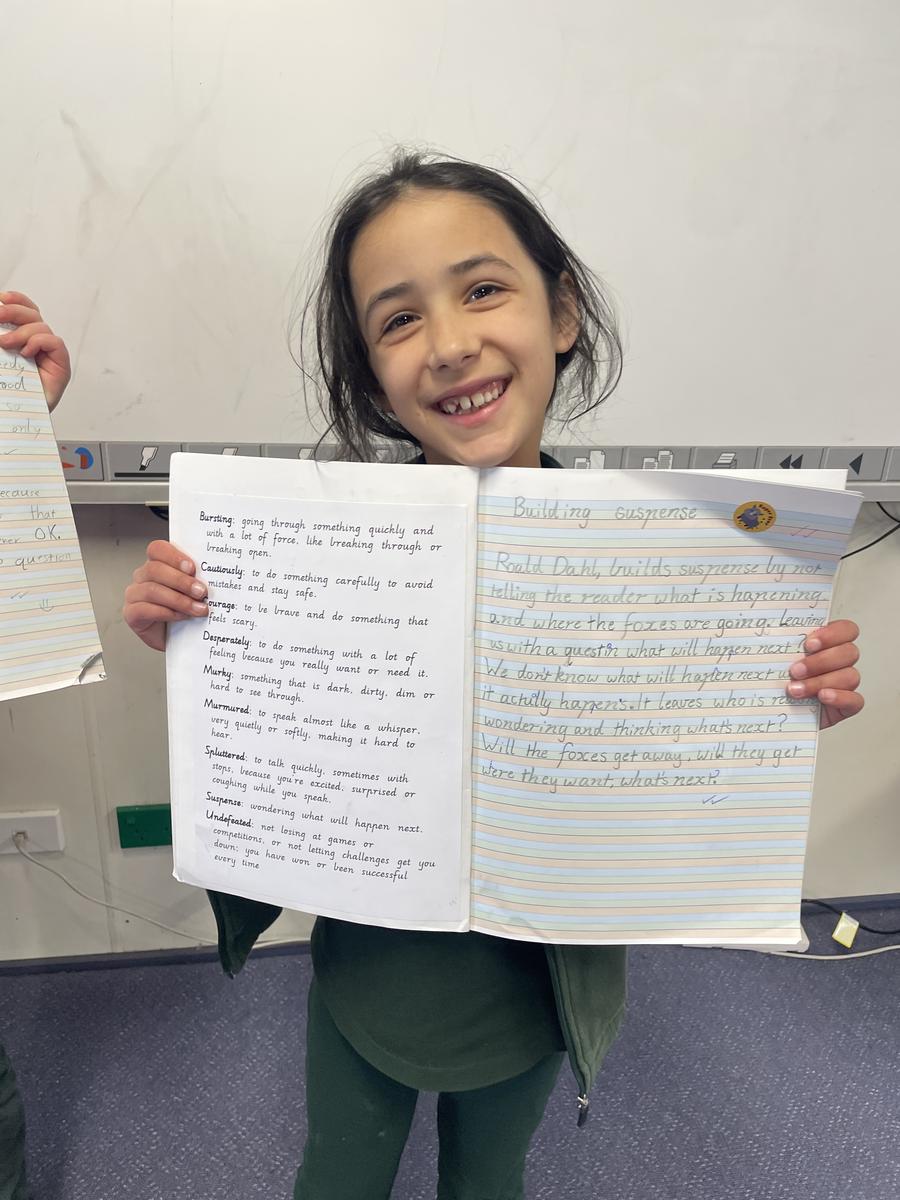 edy
ood
so
only
ecause
that
ver OK.
question
Bursting: going through something quickly and
with a lot of force, like breaking through or
breaking open.
Cautiously: to do something carefully to avoid
mistakes and stay safe.
Courage: to be brave and do something that
feels scary.
Desperately: to do something with a lot of
feeling because you really want or need it.
Murky: something that is dark, dirty, dim or
hard to see through.
Murmured: to speak almost like a whisper,
very quietly or softly, making it hard to
hear.
Spluttered: to talk quickly, sometimes with
stops, because you're excited, surprised or
coughing while you speak.
Suspense: wondering what will happen next.
Undefeated: not losing at games or
competitions, or not letting challenges get you
down; you have won or been successful
every time
Building suspense
Roald Dahl, builds suspense by not
telling the reader what is hapening
and where the foxes are going, leaving
us with a questin what will happen next?
We don't know what will happen next
it actully happens. It leaves who is
wondering and thinking what's next?
Will the foxes get away, will they get
were they want, what's next?